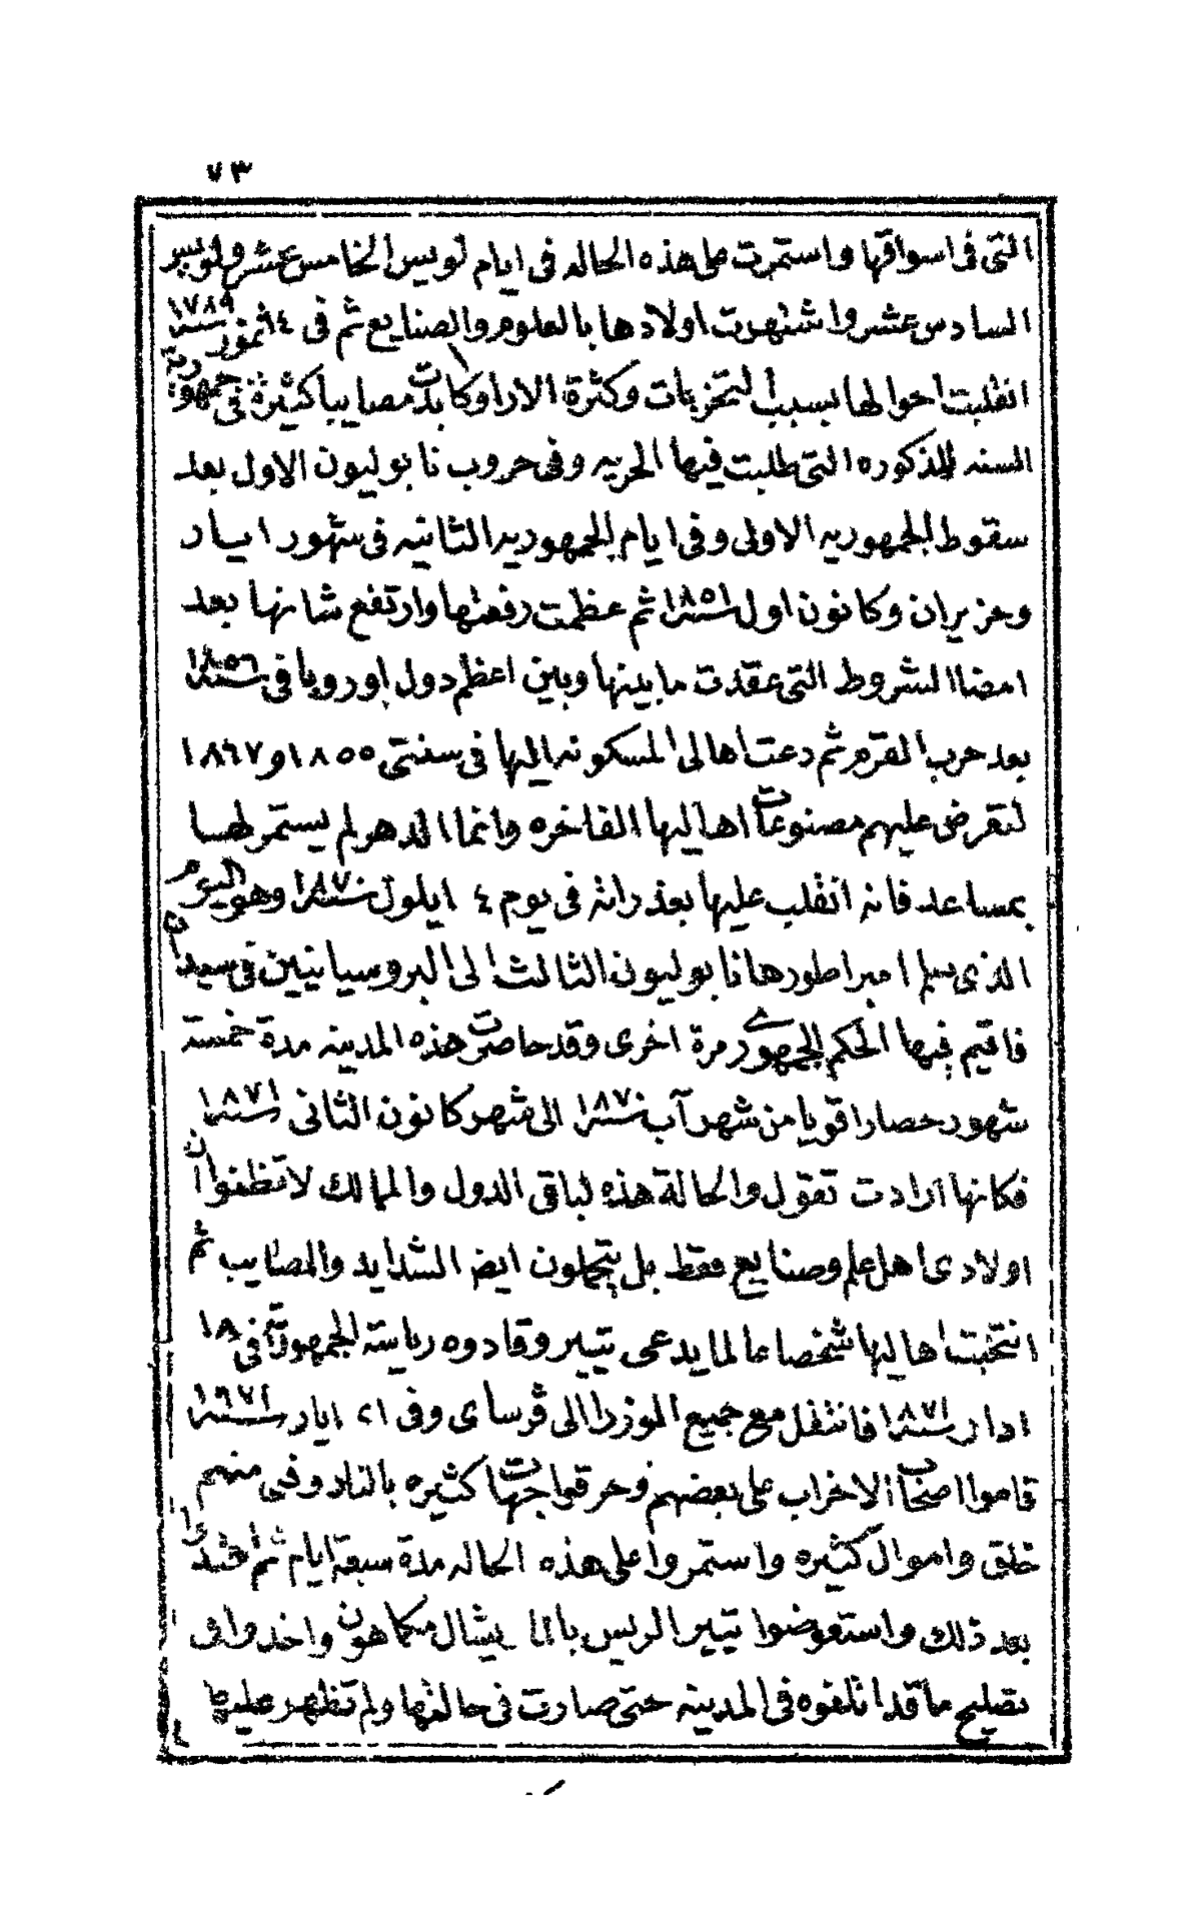 ٧٣
التي في اسواقها واستمرت على هذه الحاله في ايام لويس الخامس عشر ولويس
السادس عشر واشتهرت اولادها بالعلوم والصنايع ثم في ١٤ تموز سنة ١٧٨٩
انقلبت احوالها بسبب التحزبات وكثرة الارا وكابدت مصايبا كثيرة في جمهورية
السنه المذكوره التي طلبت فيها الحريه وفي حروب نابوليون الاول بعد
سقوط الجمهوريه الاولى وفي ايام الجمهوريه الثانيه في شهور ايار
وحزيران وكانون اول سنة ١٨٥١ ثم عظمت رفعتها وارتفع شانها بعد
امضا الشروط التي عقدت مابينها وبين اعظم دول اوروپا في سنة ١٨٥٦
بعد حرب القرم ثم دعت اهالي المسكونه اليها في سنتي ١٨٥٥ و ١٨٦٧
لتعرض عليهم مصنوعات اهاليها الفاخره وانما الدهر لم يستمر لها
بمساعد فانه انقلب عليها بغدراته في يوم ٤ ايلول سنة ١٨٧٠ وهو اليوم
الذي سلم امبراطورها نابوليون الثالث الى البروسيانيين في سيدان
فاقيم فيها الحكم الجمهوري مرة اخرى وقد حاصرت هذه المدينه مدة خمسة
شهور حصارا قويا من شهر آب سنة ١٨٧٠ الى شهر كانون الثاني سنة ١٨٧١
فكانها ارادت تقول والحالة هذه لباقي الدول والممالك لا تظنوا ان
اولادي اهل علم وصنايع فقط بل يتحملون ايضا الشدايد والمصايب ثم
انتخبت اهاليها شخصا عالما يدعى تيير وقادوه رياسة الجمهورية في ١٨
ادار سنة ١٨٧١ فانتقل مع جميع الوزرا الى ڤرساي وفي ٢١ ايار سنة ١٩٧١
قاموا اصحاب الاحزاب على بعضهم وحرقوا جهات كثيره بالنار وفني منهم
خلق واموال كثيره واستمروا على هذه الحاله مدة سبعة ايام ثم اخمدوا
بعد ذلك واستعوضوا تيير الريس بالمارشال مكماهون واخذوا في
تصليح ما قد اتلفوه في المدينه حتى صارت في حالتها ولم تظهر عليها